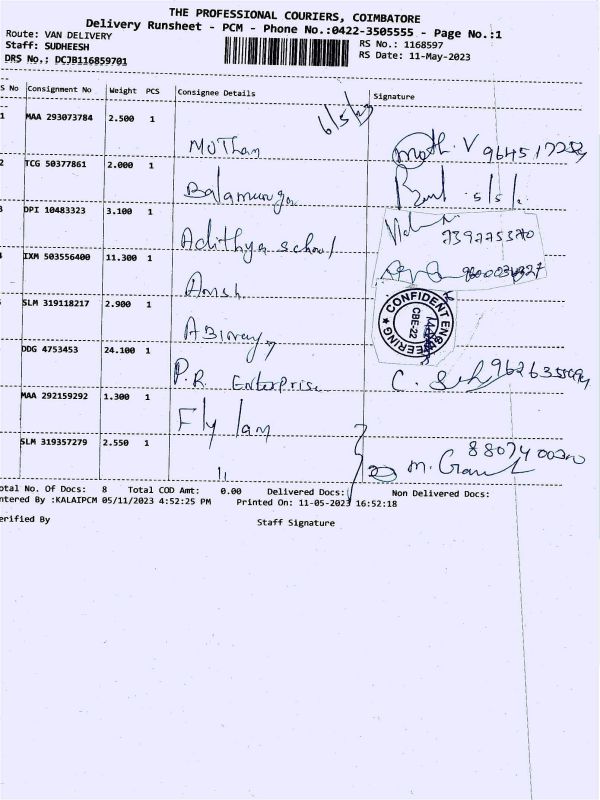 THE PROFESSIONAL COURIERS, COIMBATORE
Delivery Runsheet - PCM - Phone No.:0422-3505555 - Page No.:1
Route: VAN DELIVERY
RS No.: 1168597
Staff: SUDHEESH
RS Date: 11-May-2023
DRS No.: DCJB116859701
S No Consignment No Weight PCS Consignee Details Signature
6/5/23
1 MAA 293073784 2.500 1
Mothan
2 TCG 50377861 2.000 1
Balamuruga
3 DPI 10483323 3.100 1
Adithya school
7397775370
IXM 503556400 11.300 1
Amsh
SLM 319118217 2.900 1
CONFIDENT ENGINEERING
CBE-22
DDG 4753453 24.100 1
P.R. Enterprise
MAA 292159292 1.300 1
Fly lam
SLM 319357279 2.550 1
11
otal No. Of Docs: 8 Total COD Amt: 0.00 Delivered Docs: Non Delivered Docs:
ntered By :KALAIPCM 05/11/2023 4:52:25 PM Printed On: 11-05-2023 16:52:18
erified By
Staff Signature